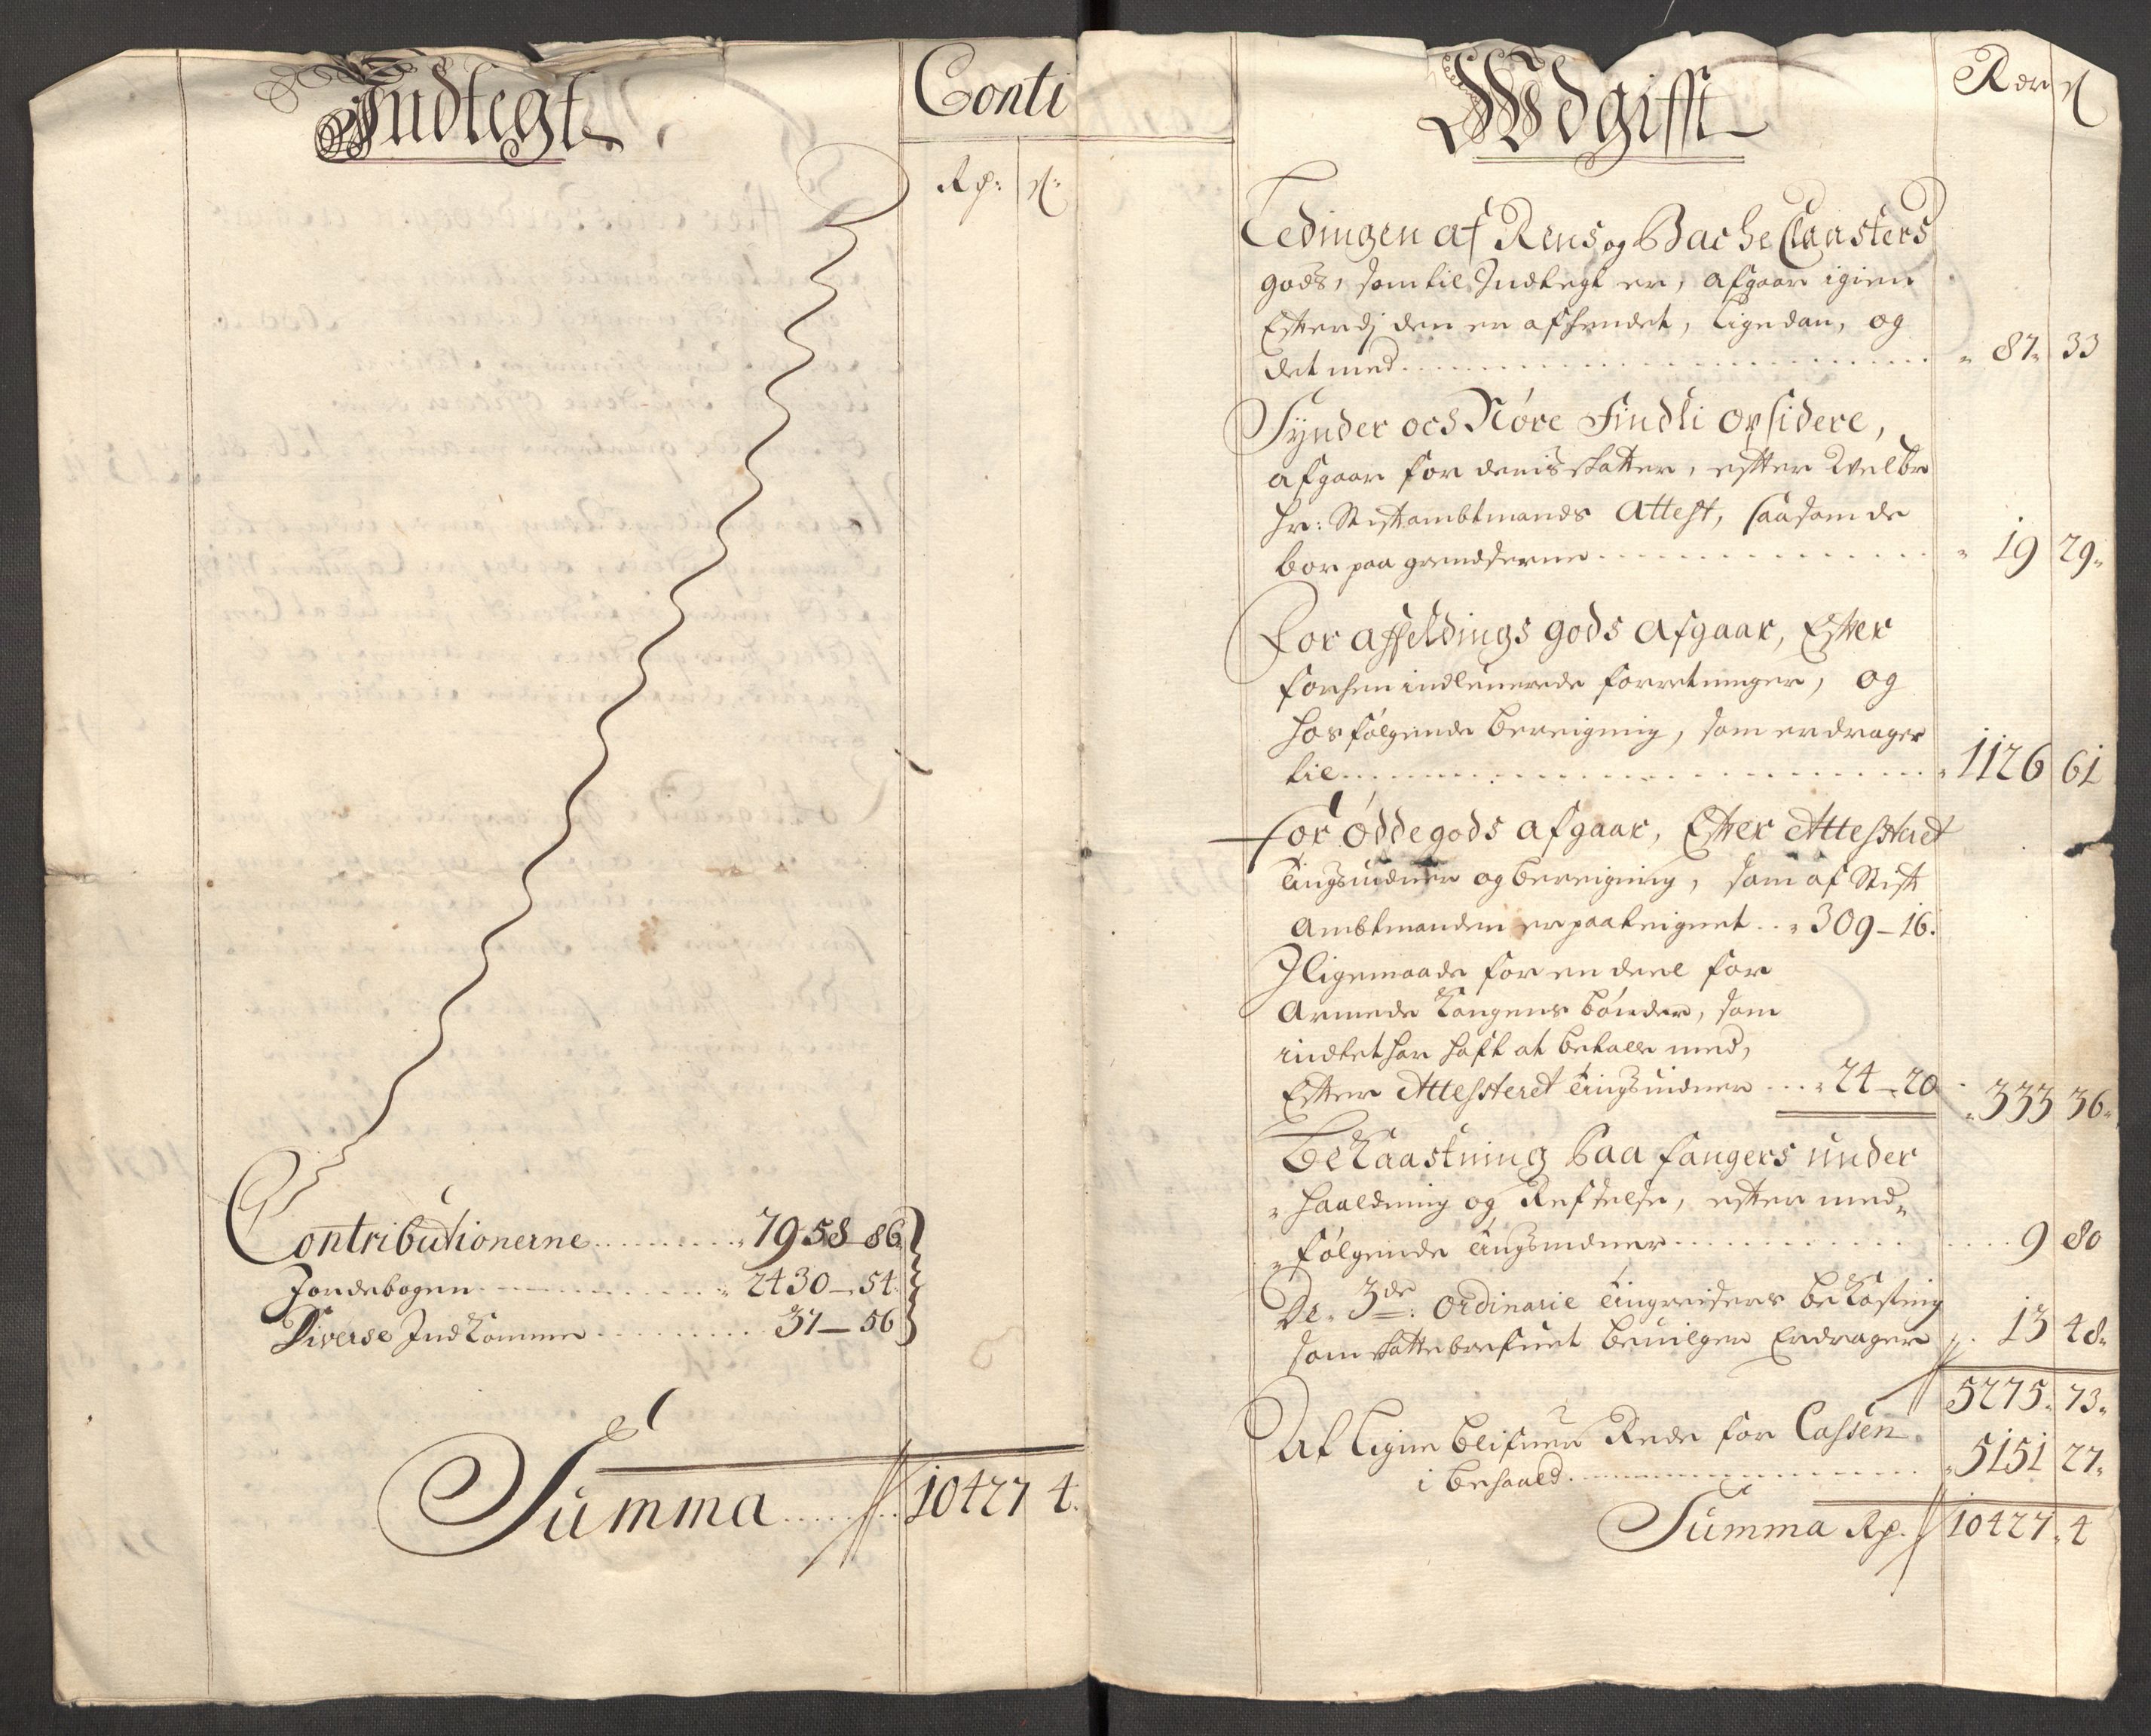 Indtegt
Conti
Rp: ß:
Contributionerne 7958 86
Jordebogen 2430 – 54
Diverse Indkomme 37 – 56
Summa 10427 4.
Udgifft
Rdr ß
Ledingen af Rens og Bache Claasters
gods, som til Indtegt er, afgaar igien
Efterdj den er afhendet, ligedan, og
det med 87 33
Synder och Nöre Findli opsidere,
afgaar for deris skatter, efter Velbr
hr: Stiftambtmands Attest, saasom de
bor paa grendserne 19 29
For affeldings gods afgaar, Efter
forhen indleuerede forretninger, og
hosfølgende bereigning, som erdrager
til 1126 61
for øddegods afgaar, Efter Attesteret
tingsuidner og bereigning, som af Stift
Ambtmanden er paateignet 309 – 16.
Iligemaade for en deel for
Armede Kongens bønder, som
indtet har haft at betalle med,
Efter Attesteret tingsuidner 24 – 20 333 36
Bekaastning Paa fangers under
haaldning og Reftelse, efter med
følgende tingsuidner 9 80
De 3de: ordinarie tingreisers bekosting
som skattebrefuet beuilger Erdrager 13 48
5275. 73.
Af ligne blifuer Rede for Cassen
i behaald 5151 27.
Summa Rp. 10427. 4